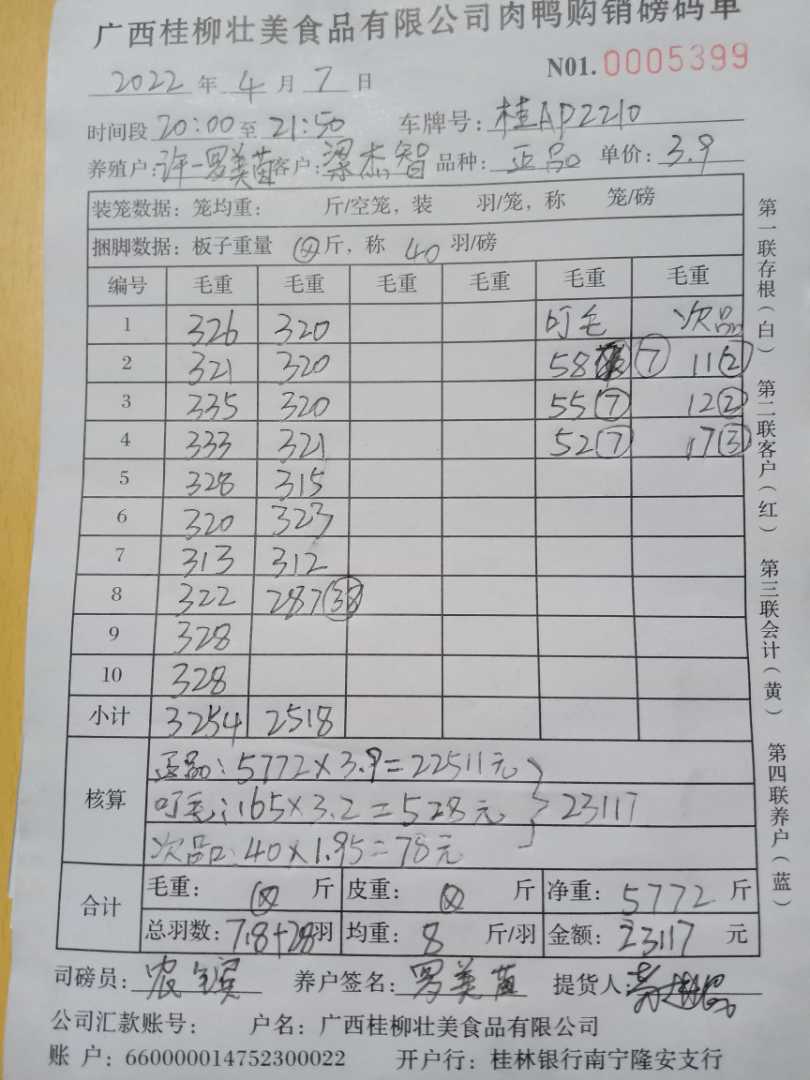 广西桂柳壮美食品有限公司肉鸭购销磅码单
2022 年 4 月 7 日 N01. 0005399
时间段 20:00 至 21:50 车牌号: 桂AP2210
养殖户: 许-罗美苗 客户: 梁杰智 品种: 正品 单价: 3.9
装笼数据: 笼均重: 斤/空笼, 装 羽/笼, 称 笼/磅
捆脚数据: 板子重量 斤, 称 40 羽/磅
编号 毛重 毛重 毛重 毛重 毛重 毛重
1 326 320 叮毛 次品
2 321 320 58 ⑦ 11②
3 335 320 55⑦ 12②
4 333 321 52⑦ 17③
5 328 315
6 320 323
7 313 312
8 322 287㊳
9 328
10 328
小计 3254 2518
核算
正品: 5772×3.9=22511元
叮毛: 165×3.2=528元 } 23117
次品: 40×1.95=78元
合计
毛重: 斤 皮重: 斤 净重: 5772 斤
总羽数: 718+28羽 均重: 8 斤/羽 金额: 23117 元
司磅员: 养户签名: 罗美苗 提货人:
公司汇款账号: 户名: 广西桂柳壮美食品有限公司
账 户: 660000014752300022 开户行: 桂林银行南宁隆安支行
第一联存根(白) 第二联客户(红) 第三联会计(黄) 第四联养户(蓝)